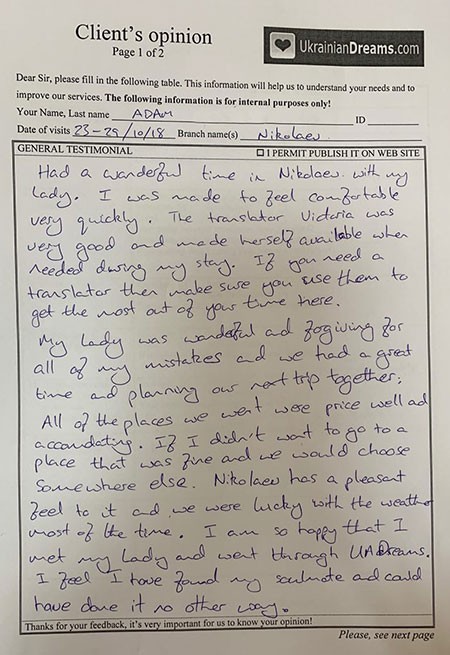 Client's opinion
Page 1 of 2
UkrainianDreams.com
Dear Sir, please fill in the following table. This information will help us to understand your needs and to
improve our services. The following information is for internal purposes only!
Your Name, Last name ADAM ID
Date of visits 23-29/10/18 Branch name(s) Nikolaev
GENERAL TESTIMONIAL ☐ I PERMIT PUBLISH IT ON WEB SITE
Had a wanderful time in Nikolaev with my
Lady. I was made to feel comfortable
very quickly. The translator Victoria was
very good and made herself available when
needed during my stay. If you need a
translator then make sure you use them to
get the most out of your time here.
My Lady was wonderful and forgiving for
all of my mistakes and we had a great
time and planning our next trip together.
All of the places we went were price well ad
accomdating. If I didn't want to go to a
place that was fine and we would choose
Somewhere else. Nikolaev has a pleasant
feel to it and we were lucky with the weather
most of the time. I am so happy that I
met my Lady and went through UADreams.
I feel I have found my soulmate and could
have done it no other way.
Thanks for your feedback, it's very important for us to know your opinion!
Please, see next page